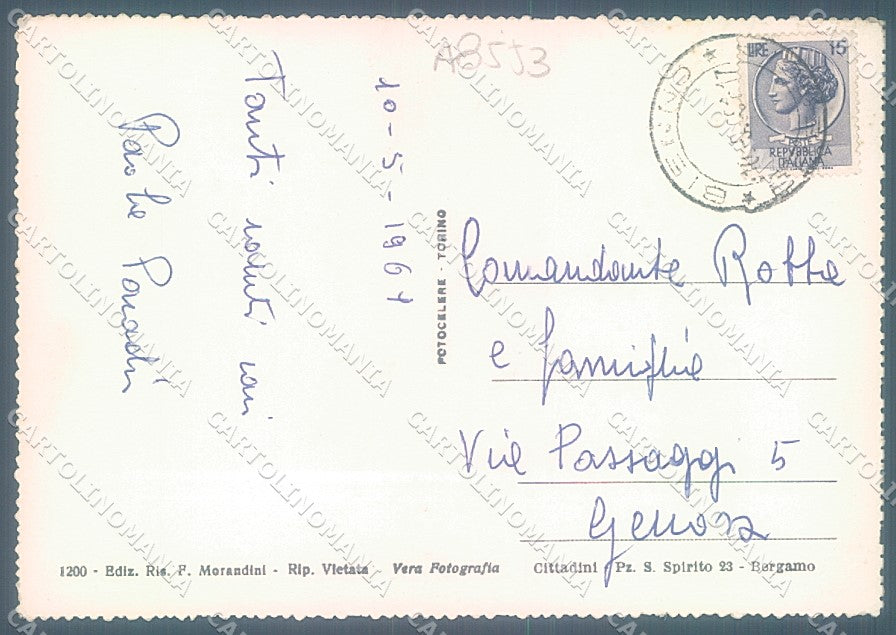 A8553
10-5-1961
Tanti saluti cari
LIRE 15
POSTE
REPVBBLICA
ITALIANA
BIENNO
FOTOCELERE - TORINO
Comandante Rotta
e famiglia
Via Passaggi 5
Genova
1200 - Ediz. Ris. F. Morandini - Rip. Vietata - Vera Fotografia
Cittadini - Pz. S. Spirito 23 - Bergamo
CARTOLINOMANIA